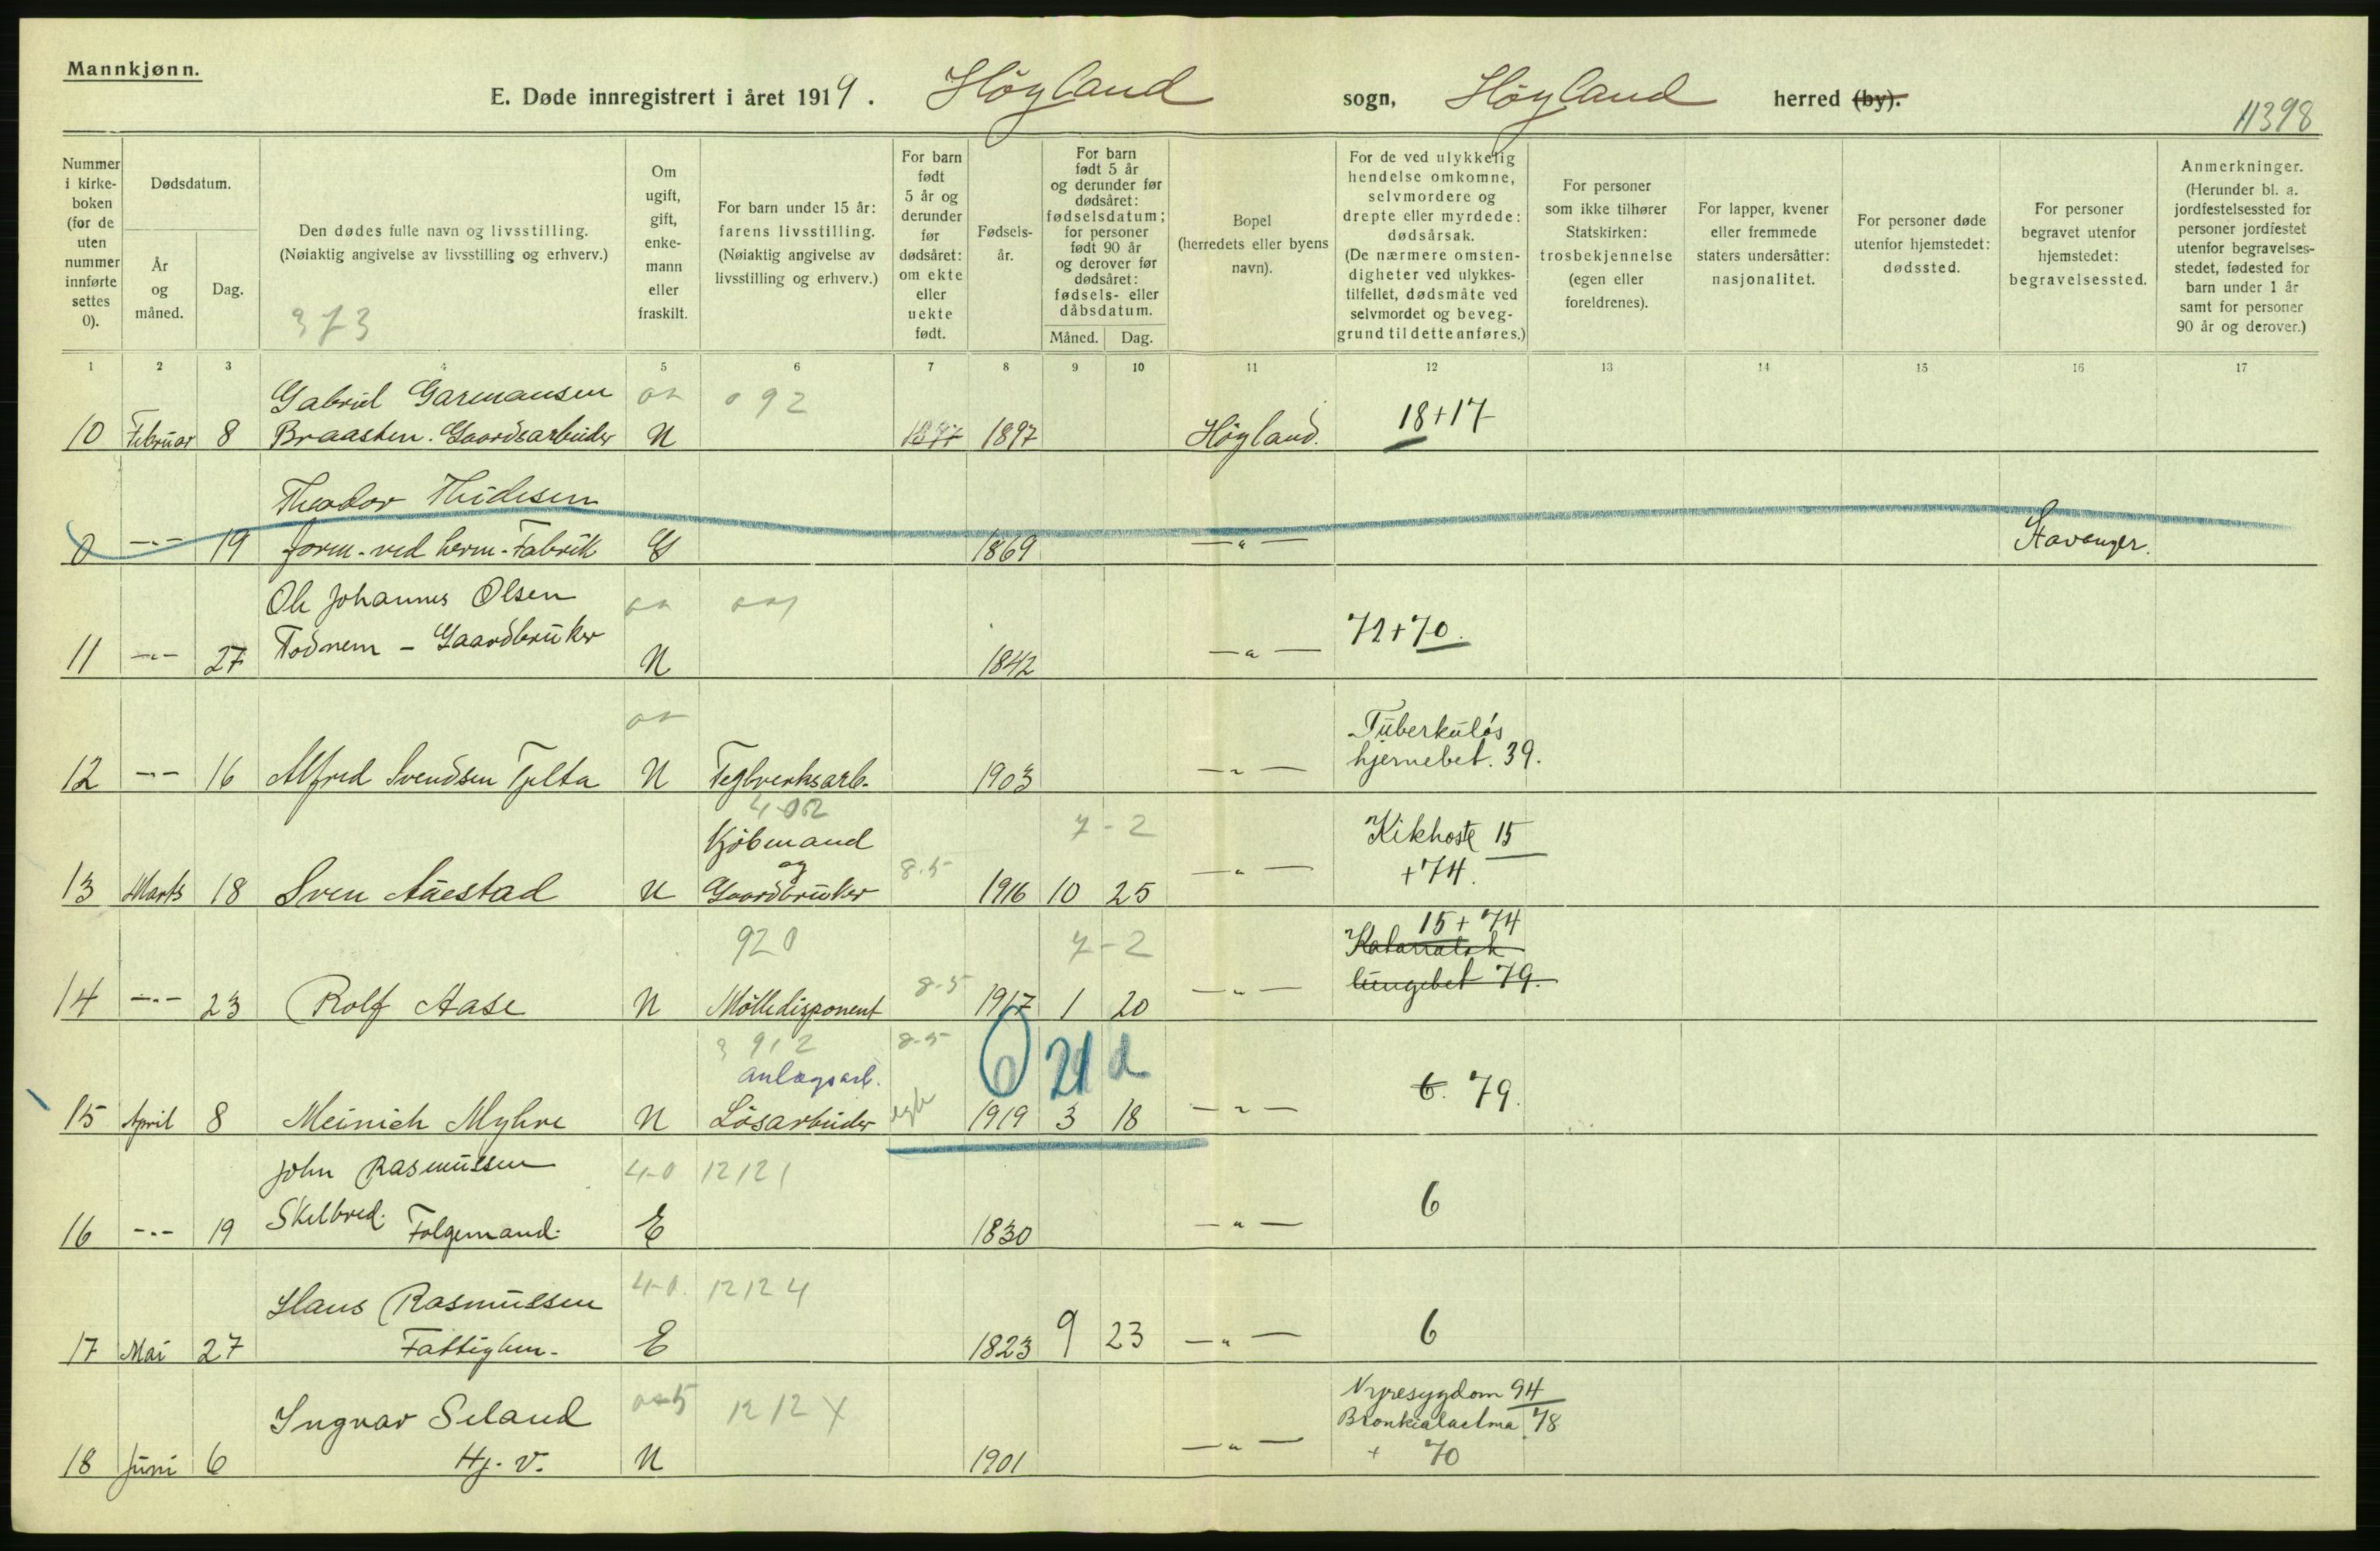 Mannkjønn.
E. Døde innregistrert i året 1919. Høyland sogn, Høyland herred (by).
11398
Nummer i kirke-boken (for de uten nummer innførte settes 0).
Dødsdatum.
År og måned.
Dag.
Den dødes fulle navn og livsstilling.
(Nøiaktig angivelse av livsstilling og erhverv.)
373
Om ugift, gift, enke-mann eller fraskilt.
For barn under 15 år: farens livsstilling.
(Nøiaktig angivelse av livsstilling og erhverv.)
For barn født 5 år og derunder før dødsåret: om ekte eller uekte født.
Fødsels-år.
For barn født 5 år og derunder før dødsåret: fødselsdatum; for personer født 90 år og derover før dødsåret: fødsels- eller dåbsdatum.
Måned.
Dag.
Bopel (herredets eller byens navn).
For de ved ulykkelig hendelse omkomne, selvmordere og drepte eller myrdede: dødsårsak.
(De nærmere omsten-digheter ved ulykkes-tilfellet, dødsmåte ved selvmordet og beveg-grund til dette anføres.)
For personer som ikke tilhører Statskirken: trosbekjennelse (egen eller foreldrenes).
For lapper, kvener eller fremmede staters undersåtter: nasjonalitet.
For personer døde utenfor hjemstedet: dødssted.
For personer begravet utenfor hjemstedet: begravelsessted.
Anmerkninger.
(Herunder bl. a. jordfestelsessted for personer jordfestet utenfor begravelses-stedet, fødested for barn under 1 år samt for personer 90 år og derover.)
1 2 3 4 5 6 7 8 9 10 11 12 13 14 15 16 17
Gabriel Garmansen 092
10 Februar 8 Braasten. Gaardsarbeider U 1897 1897 Høyland. 18+17
Theodor Thidesen
0 -"- 19 form. ved herm. Fabrik G 1869 -"- Stavanger.
Ole Johannes Olsen
11 -"- 27 Todnem - Gaardbruker U 1842 -"- 72+70.
12 -"- 16 Alfred Svendsen Tjelta U Teglverksarb. 1903 -"- Tuberkuløs hjernebet. 39.
402 7-2
Kjøbmand
og
13 Marts 18 Sven Auestad U Gaardbruker 8.5 1916 10 25 -"- Kikhoste 15 +74.
920 7-2 15+74
14 -"- 23 Rolf Aase U Mølledisponent 8-5 1917 1 20 -"- Katarralsk lungebet 79.
3912 8-5 0 21 d
Anlægsarb.
15 April 8 Meinich Myhre U Løsarbeider egte 1919 3 18 -"- 6. 79.
John Rasmussen 4-0 12121
16 -"- 19 Skelbred. Folgemand. E 1830 -"- 6
Hans Rasmussen 4-0. 12124
17 Mai 27 Fattiglem. E 1823 9 23 -"- 6
Ingvar Seland 1212X
18 Juni 6 Hj. v. U 1901 -"- Nyresygdom 94
Bronkialastma 78
+ 70